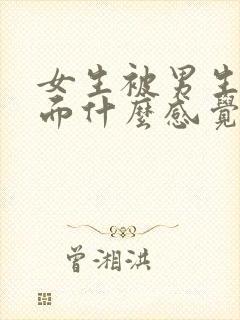 女生被男生
而什麼感覺
曾湘洪